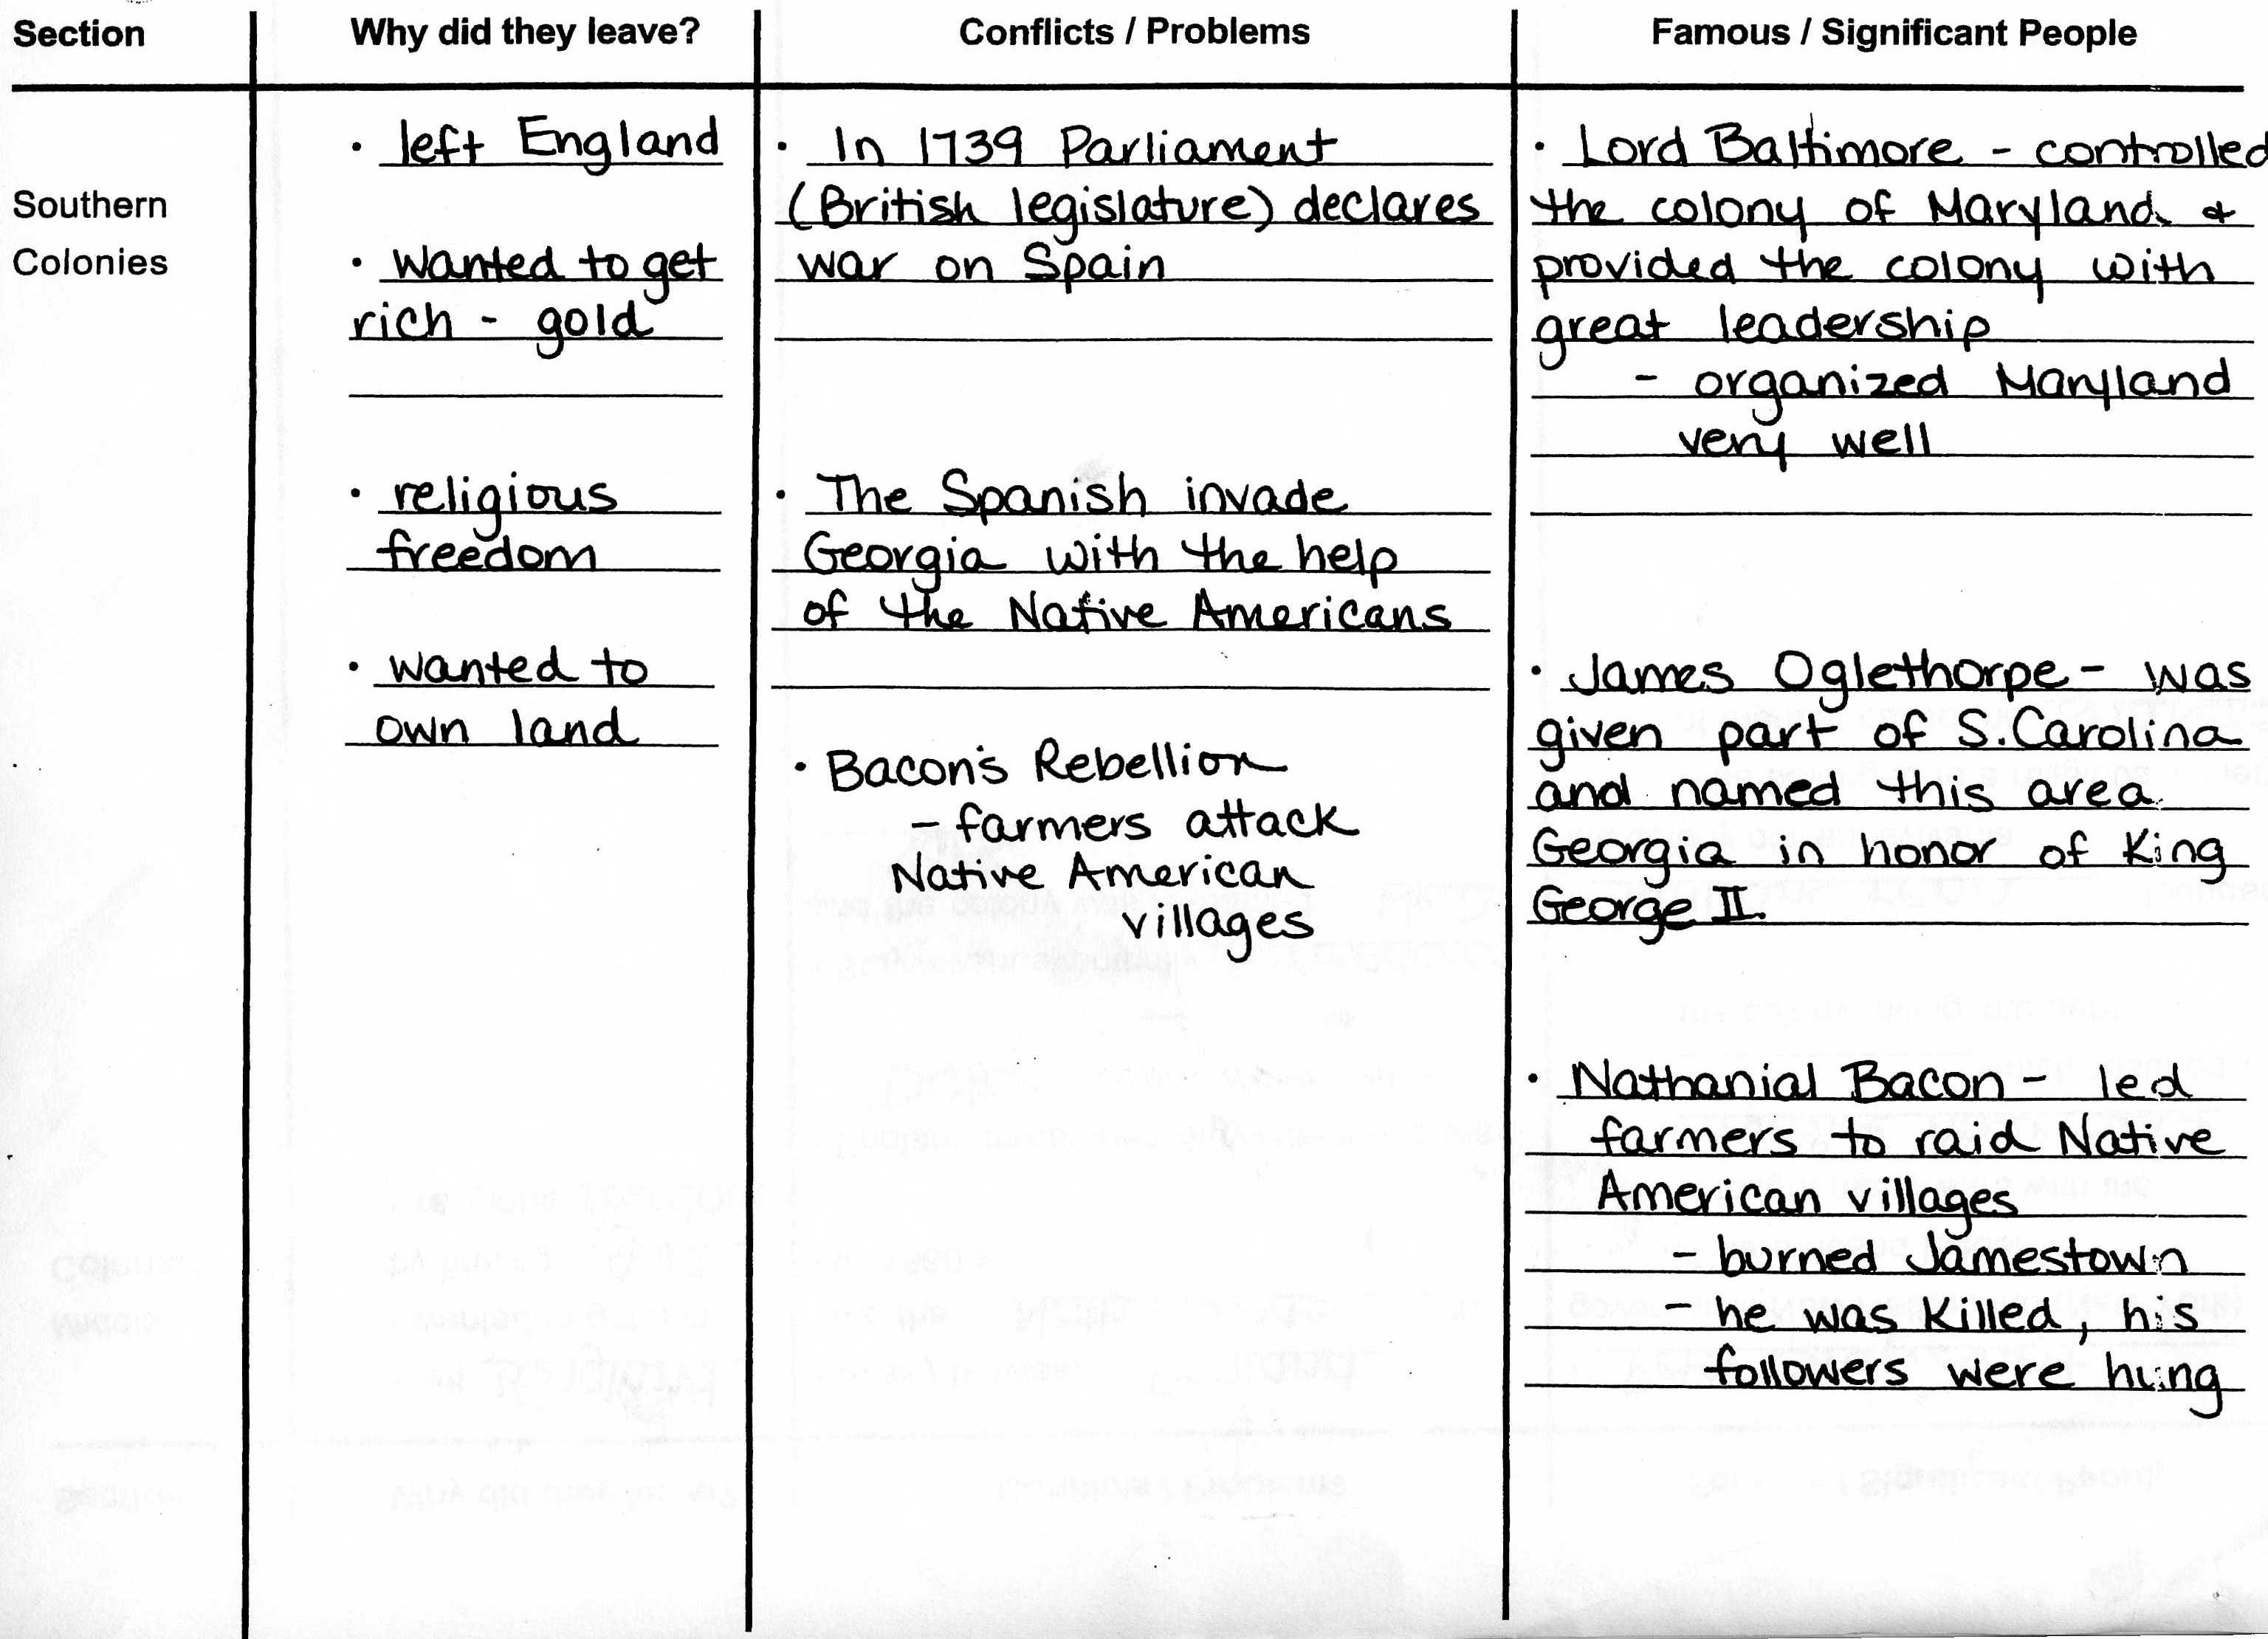 Section
Why did they leave?
Conflicts / Problems
Famous / Significant People
Southern
Colonies
· left England
· wanted to get
rich - gold
· religious
freedom
· wanted to
own land
· In 1739 Parliament
(British legislature) declares
war on Spain
· The Spanish invade
Georgia with the help
of the Native Americans
· Bacon's Rebellion
- farmers attack
Native American
villages
· Lord Baltimore - controlled
the colony of Maryland &
provided the colony with
great leadership
- organized Maryland
very well
· James Oglethorpe - was
given part of S. Carolina
and named this area
Georgia in honor of King
George II.
· Nathanial Bacon - led
farmers to raid Native
American villages
- burned Jamestown
- he was killed, his
followers were hung